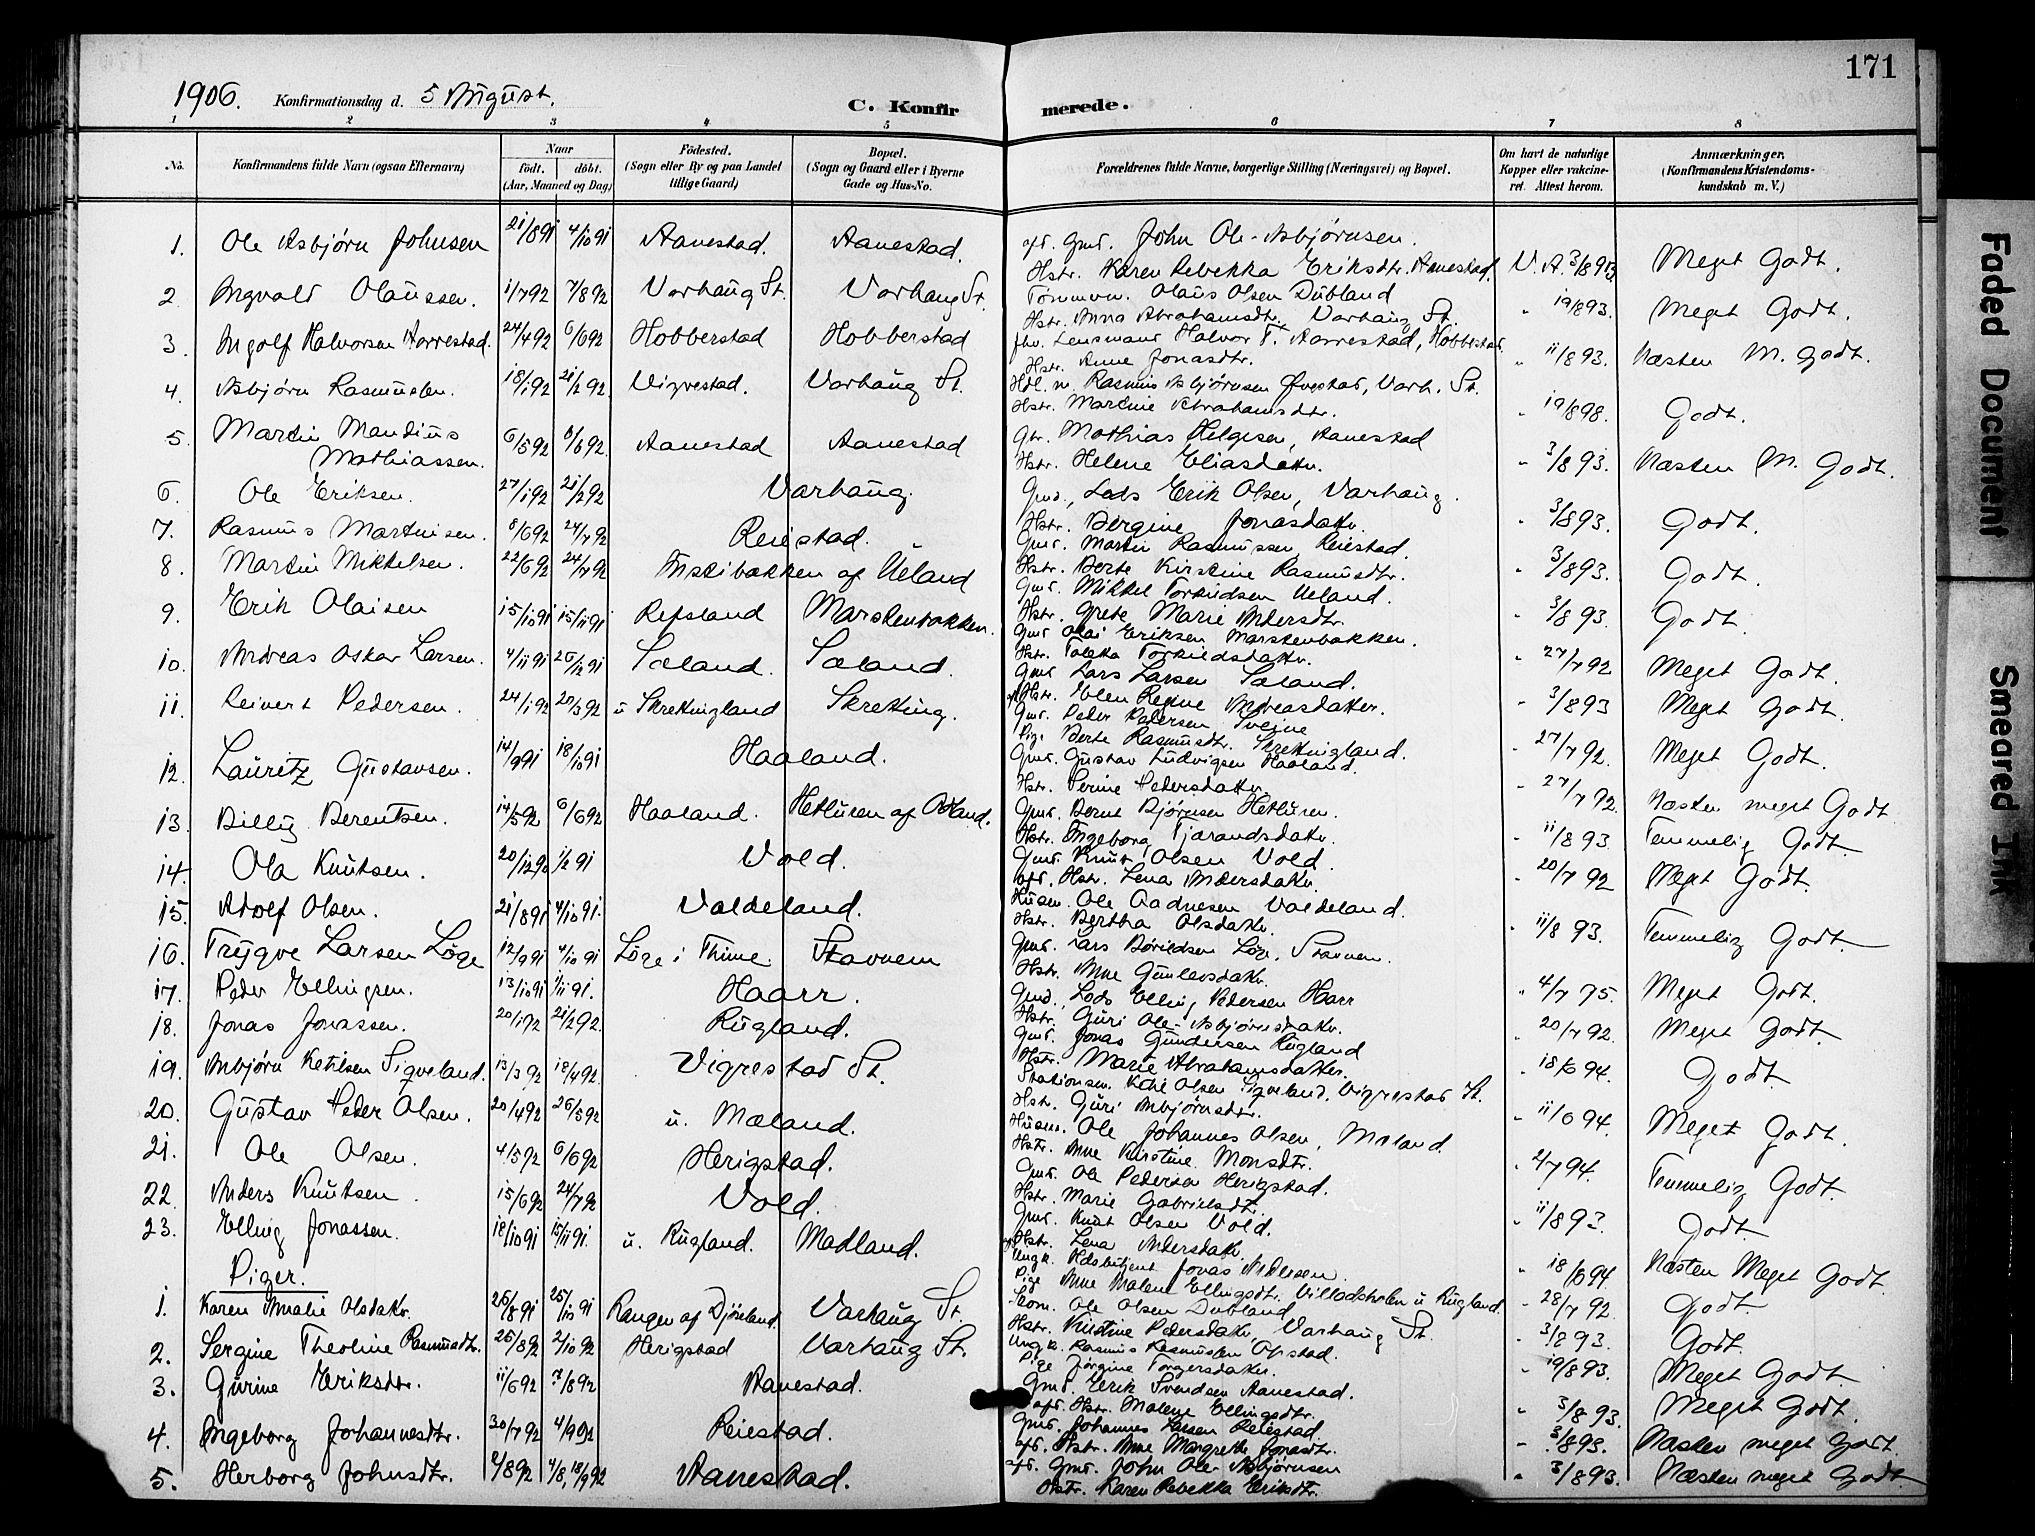 171
1906. Konfirmationsdag d. 5 August.
C. Konfirmerede.
1 2 3 4 5 6 7 8
No. Konfirmandens fulde Navn (ogsaa Efternavn) Naar født. døbt. (Aar, Maaned og Dag) Fødested. (Sogn eller By og paa Landet tillige Gaard) Bopæl. (Sogn og Gaard eller i Byerne Gade og Hus-No. Forældrenes fulde Navne, borgerlige Stilling (Næringsvei) og Bopæl. Om havt de naturlige Kopper eller vakcineret. Attest herom. Anmærkninger. (Konfirmandens Kristendomskundskab m. V.)
1. Ole Asbjørn Johnsen 21/8 91 4/10 91 Aanestad. Aanestad. afd. Gmd. John Ole-Asbjørnsen.
Hstr. Karen Rebekka Eriksdtr. Aanestad. V. A. 3/8 93 Meget Godt.
2. Ingvald Olaussen. 1/7 92 7/8 92 Varhaug St. Varhaug St. Tømmerm. Olaus Olsen Dubland
Hstr. Anna Abrahamsdtr. Varhaug St. " 19/8 93. Meget Godt.
3. Ingolf Halvorsen Aarrestad. 24/4 92 6/6 92 Hobberstad Hobberstad fhv. Lensmand Halvor T. Aarrestad, Hobberstad.
Hstr. Anne Jonasdtr. " 11/8 93. Næsten M. Godt.
4. Asbjørn Rasmussen. 18/1 92 21/2 92 Vigrestad. Varhaug St. Hdl. m. Rasmus Asbjørnsen Øvestad, Varh. St.
Hstr. Martine Abrahamsdtr. " 19/8 98. Godt.
5. Martin Mandius Mathiassen. 6/5 92 6/6 92. Aanestad Aanestad Gbr. Mathias Helgesen, Aanestad
Hstr. Helene Eliasdatr. " 3/8 93. Næsten M. Godt.
6. Ole Eriksen. 27/1 92 21/2 92 Varhaug. Gmd., Lods Erik Olsen, Varhaug.
Hstr. Bergine Jonasdatr. " 3/8 93. Godt.
7. Rasmus Martinsen. 8/6 92 24/7 92 Reiestad. Gmd. Martin Rasmussen Reiestad.
Hstr. Berte Kirstine Rasmusdtr. " 3/8 93. Godt.
8. Martin Mikkelsen. 22/6 92 24/7 92 Fuskibakken af Ueland Gmd. Mikkel Torkildsen Ueland.
Hstr. Grete Marie Andersdtr. " 3/8 93. Godt.
9. Erik Olaisen 15/10 91 15/11 91 Refsland Marskenbakken. Gmd Olai Eriksen Marskenbakken.
Hstr. Tolleka Torkildsdatr. " 27/7 92 Meget Godt.
10. Andreas Oskar Larsen. 4/11 91 26/12 91 Sæland. Sæland. Gmd Lars Larsen Sæland.
Hstr. Elen Regine Andreasdatter. " 3/8 93 Meget Godt.
11. Reivert Pedersen. 24/1 92 20/3 92 u Skretingland Skreting. Gmd. Peder Pedersen Tveine
Pige Berte Rasmusdtr. Skretingland. " 27/7 92. Meget Godt.
12. Lauritz Gustavsen. 14/9 91 18/10 91 Haaland. Gmd. Gustav Ludvigsen Haaland.
Hstr. Serine Pedersdatr. " 27/7 92. Næsten meget Godt
13. Billig Berentsen. 14/5 92 6/6 92 Haaland. Hetluren af Odland. Gmd. Bernt Bjørnsen Hetluren.
Hstr. Ingeborg Tjerandsdatr. " 11/8 93. Temmelig Godt.
14. Ola Knutsen. 20/12 90 1/2 91 Vold. Gmd. Knut Olsen Vold.
afd. Hstr. Lena Andersdatr. " 20/7 92 Meget Godt.
15. Adolf Olsen. 21/8 91 4/10 91. Valdeland. Husm. Ole Aadnesen Valdeland.
Hstr. Bertha Olsdatr. " 11/8 93. Temmelig Godt.
16. Trygve Larsen Løge 12/9 91 4/10 91 Løge i Thime. Stavnem Gmd. Lars Børildsen Løge, Stavnem.
Hstr. Anne Gunlevsdatr.
17. Peder Ellingsen. 13/10 91 1/11 91. Haarr. Gmd., Lods Elling Pedersen Haarr
Hstr. Guri Ole-Asbjørnsdatr. " 4/7 95. Meget Godt.
18. Jonas Jonassen. 20/1 92 21/2 92. Rugland. Gmd. Jonas Gundersen Rugland
Hstr. Marie Abrahamsdatter. " 20/7 92. Meget Godt.
19. Anbjørn Ketilsen Sigveland. 13/3 92 18/4 92. Vigrestad St. Stationsm. Ketil Olsen Sigveland, Vigrestad St.
Hstr. Guri Anbjørnsdtr. " 18/6 94. Godt.
20. Gustav Peder Olsen. 20/4 92 26/5 92 u. Mæland. Husm. Ole Johannes Olsen, Mæland.
Hstr. Anne Kirstine Monsdtr. " 11/6 94. Meget Godt.
21. Ole Olsen. 4/5 92 6/6 92 Herigstad. Gmd. Ole Pedersen Herigstad.
Hstr. Marie Gabrielsdtr. " 2/7 94. Temmelig Godt.
22. Anders Knutsen. 15/6 92 24/7 92 Vold. Gmd. Knut Olsen Vold.
Hstr. Lena Andersdatr. " 11/8 93. Godt.
23. Elling Jonassen. 18/10 91 15/11 91. u. Rugland. Madland. Ungk. Hdsbetjent Jonas Andersen.
Pige Anne Malene Ellingsdtr. Villadsholen u Rugland. " 18/6 94 Næsten Meget Godt.
Piger.
1. Karen Amalie Olsdatr. 26/8 91 25/10 91 Rangen af Djøseland. Varhaug St. Skom. Ole Olsen Dubland
Hstr. Kirstine Pedersdatr., Varhaug St. " 28/7 92. Godt
2. Sergine Theoline Rasmusdtr. 26/8 92 2/10 92 Herigstad Varhaug St. Ungk. Rasmus Rasmussen Opstad.
Pige Jørgine Torgersdatr. " 3/8 93. Godt.
3. Gurine Eriksdtr. 11/6 92 7/8 92 Aanestad. Gmd. Erik Svendsen Aanestad.
afd. Hstr. Malene Ellingsdtr. " 19/8 93. Meget Godt.
4. Ingeborg Johannesdtr. 30/7 92 4/9 92 Reiestad. Gmd. Johannes Larsen Reiestad.
afd. Hstr. Anne Margrethe Jonasdtr. " 3/8 93. Meget Godt.
" 3/8 93. Næsten meget Godt.
5. Herborg Johnsdtr. 2/8 92 4/8, 18/9 92 Aanestad. afd. Gmd. John Ole-Asbjørnsen
Hstr. Karen Rebekka Eriksdtr. " 3/8 93. Næsten meget Godt
Faded Document
Smeared Ink